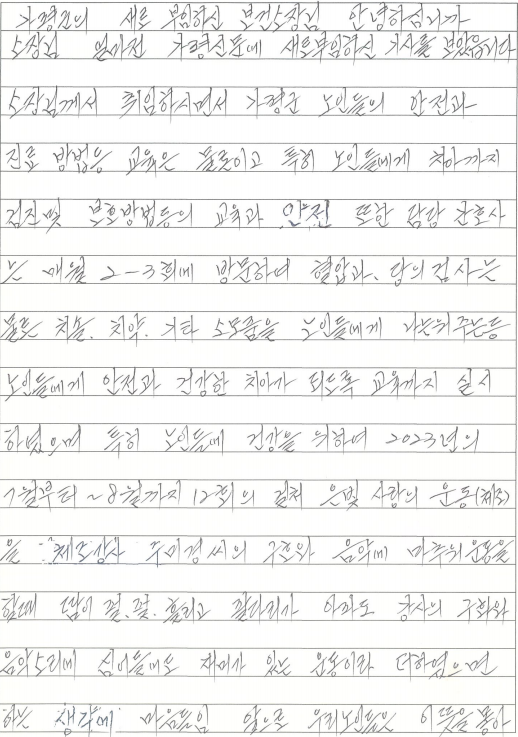 가평군의 새로 부임하신 보건소장님 안녕하십니까
소장님 얼마전 가평신문에 새로부임하신 기사를 보았읍니다
소장님께서 취임하시면서 가평군 노인들의 안전과
진료 방법등 교육은 물론이고 특히 노인들에게 치아까지
검진및 보호방법등의 교육과 안전 또한 담당 간호사
는 매월 2-3회에 방문하여 혈압과, 당의 검사는
물론 치솔, 치약, 기타 소모품을 노인들에게 나눠주는등
노인들에게 안전과 건강한 치아가 되도록 교육까지 실시
하였으며 특히 노인들에 건강을 위하여 2023년의
7월부터 ~8월까지 12회의 걸쳐 은빛 사랑의 운동(체조)
을 체조강사 주미경씨의 구호와 음악에 마추워운동을
할때 땀이 뻘뻘 흘리고 팔다리가 아파도 강사의 구화와
음악소리에 심어들며도 재미가 있는 운동이라 더하였으면
하는 생각에 마음들임 앞으로 우리노인들은 이뜻을 통하